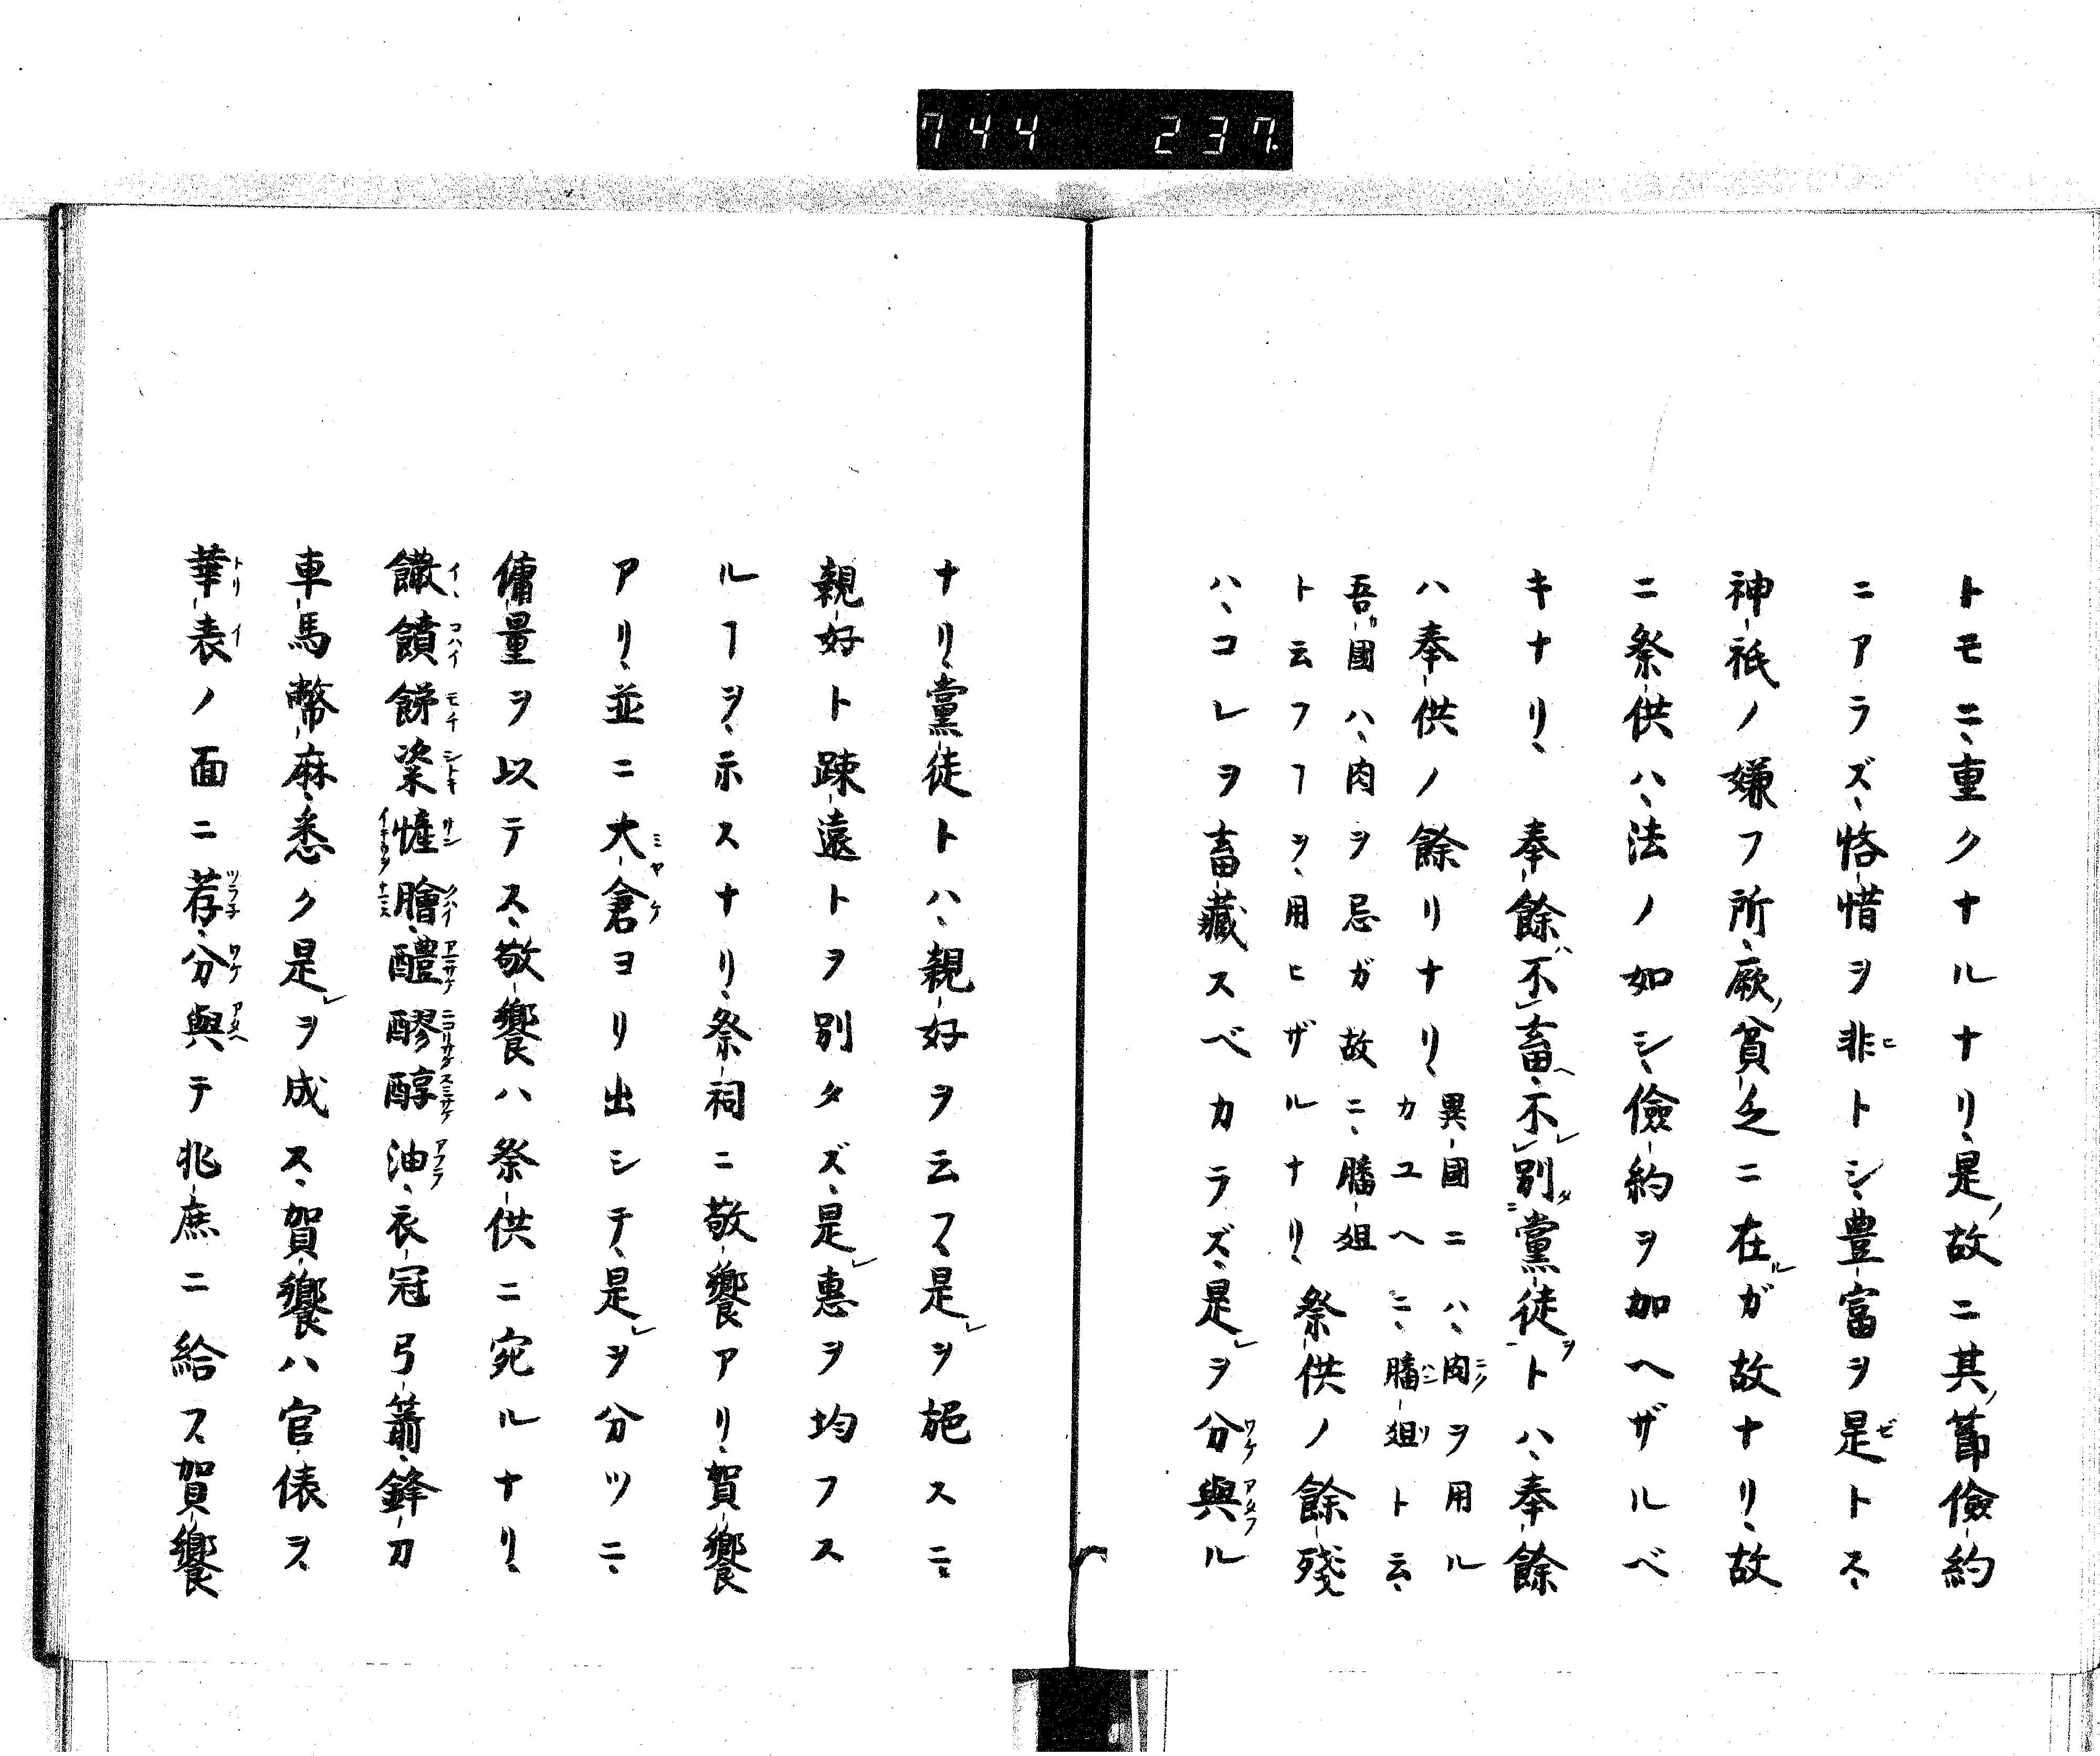 744 237.
トモニ、重クナルナリ、是ノ故ニ其ノ節儉約
ニアラズ、悋惜ヲ非トシ、豊富ヲ是トス、
神祇ノ嫌フ所、厥ノ貧乏ニ在ルガ故ナリ、故
ニ祭供ハ、法ノ如シ、儉約ヲ加ヘザルベ
キナリ、 奉餘ハ不レ畜ヘ、不レ別タ二黨徒ヲ一トハ、奉餘
ハ奉供ノ餘リナリ、異國ニハ、肉ヲ用ル
カユヘニ、膰俎ト云、
吾カ國ハ、肉ヲ忌ガ故ニ、膰俎
ト云フヿヲ、用ヒザルナリ、祭供ノ餘殘
ハ、コレヲ畜藏スベカラズ、是レヲ分與ル
ナリ、黨徒トハ、親好ヲ云フ、是レヲ施スニ、
親好ト疎遠トヲ別タズ、是レ惠ヲ均フス
ルヿヲ、示スナリ、祭祠ニ敬饗アリ、賀饗
アリ、並ニ大倉ヨリ出シテ、是レヲ分ツニ、
傭量ヲ以テス、敬饗ハ祭供ニ宛ルナリ、
饙餙粢 膾、醴醪醇油、衣冠弓箭、鋒刀
車馬幣麻、悉ク是レヲ成ス、賀饗ハ官俵ヲ、
華表ノ面ニ荐、分與テ兆庶ニ給フ、賀饗